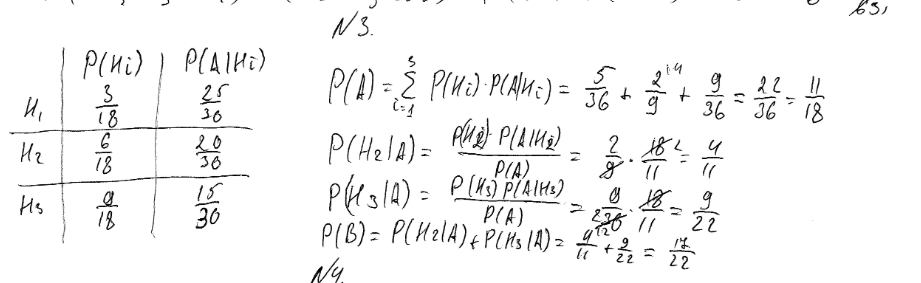 63,
N3.
P(Hi) P(A|Hi)
H1 3/18 25/30
H2 6/18 20/30
H3 9/18 15/30
P(A) = 3 Σ i=1 P(Hi)·P(A|Hi) = 5/36 + 2/9 ^(·4) + 9/36 = 22/36 = 11/18
P(H2|A) = P(H2)·P(A|H2) / P(A) = 2/9 · 18/11 ^2 = 4/11
P(H3|A) = P(H3) P(A|H3) / P(A) = 9/36 2 · 18/11 = 9/22
P(B) = P(H2|A) + P(H3|A) = 4/11 + 9/22 = 17/22
N4.